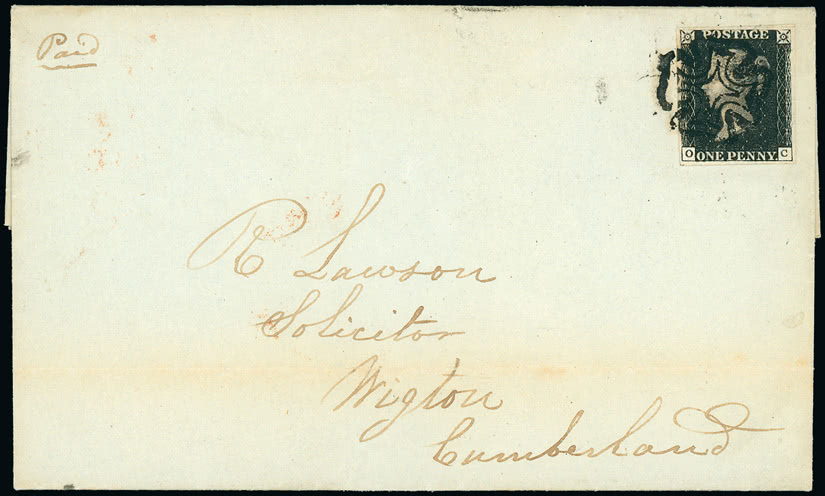 Paid
POSTAGE
O C
ONE PENNY
R Lawson
Solicitor
Wigton
Cumberland